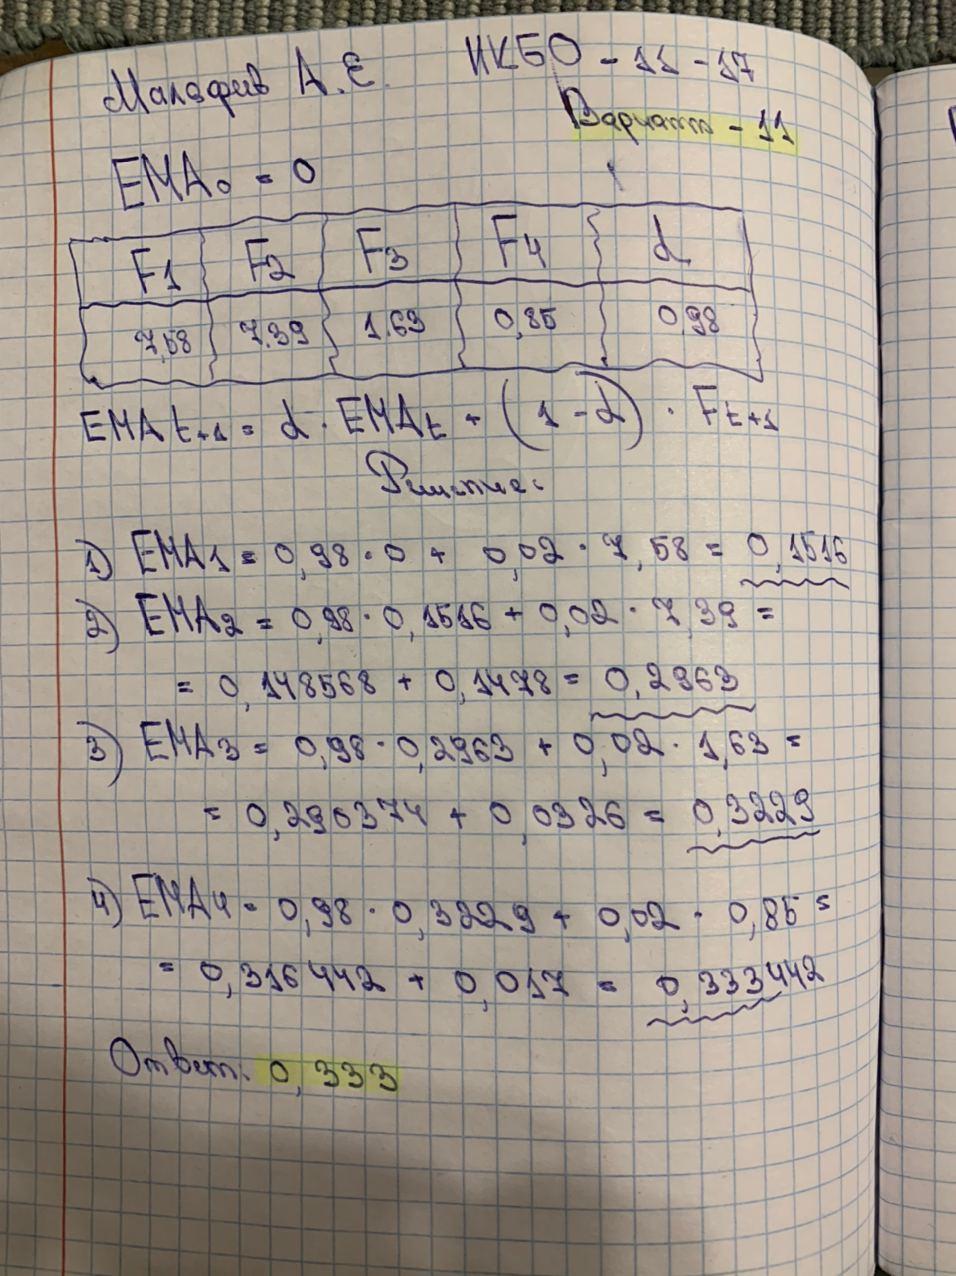 Малафеев А.Е. ИКБО - 11 - 17
Вариант - 11
EMA0 = 0
F1 F2 F3 F4 α
7,58 7.39 1.63 0,85 0,98
EMAt+1 = α · EMAt + (1 - α) · Ft+1
Решение:
1) EMA1 = 0,98 · 0 + 0,02 · 7,58 = 0,1516
2) EMA2 = 0,98 · 0,1516 + 0,02 · 7,39 =
= 0,148568 + 0,1478 = 0,2963
3) EMA3 = 0,98 · 0,2963 + 0,02 · 1,63 =
= 0,290374 + 0,0326 = 0,3229
4) EMA4 = 0,98 · 0,3229 + 0,02 · 0,85 =
= 0,316442 + 0,017 = 0,333442
Ответ: 0,333